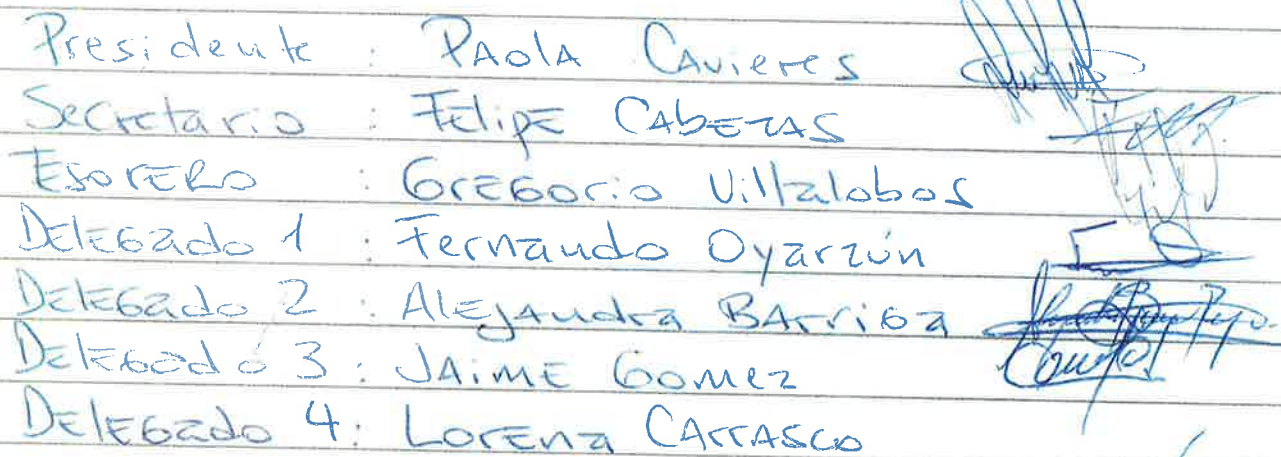 Presidente : PAolA CAvieres
Secretario : FelipE CAbEzAS
EsorERo : GrEGorio Villalobos
DelEGado 1 : Fernando Oyarzún
DelEGado 2 : AlEjAndra BArriGa
DelEGado 3 : JAimE Gomez
DelEGado 4 : LorEna CArrASco